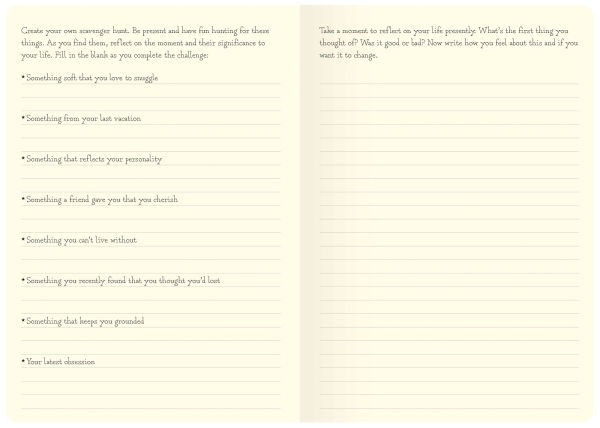 Create your own scavenger hunt. Be present and have fun hunting for these
things. As you find them, reflect on the moment and their significance to
your life. Fill in the blank as you complete the challenge:
• Something soft that you love to snuggle
• Something from your last vacation
• Something that reflects your personality
• Something a friend gave you that you cherish
• Something you can't live without
• Something you recently found that you thought you'd lost
• Something that keeps you grounded
• Your latest obsession
Take a moment to reflect on your life presently. What's the first thing you
thought of? Was it good or bad? Now write how you feel about this and if you
want it to change.